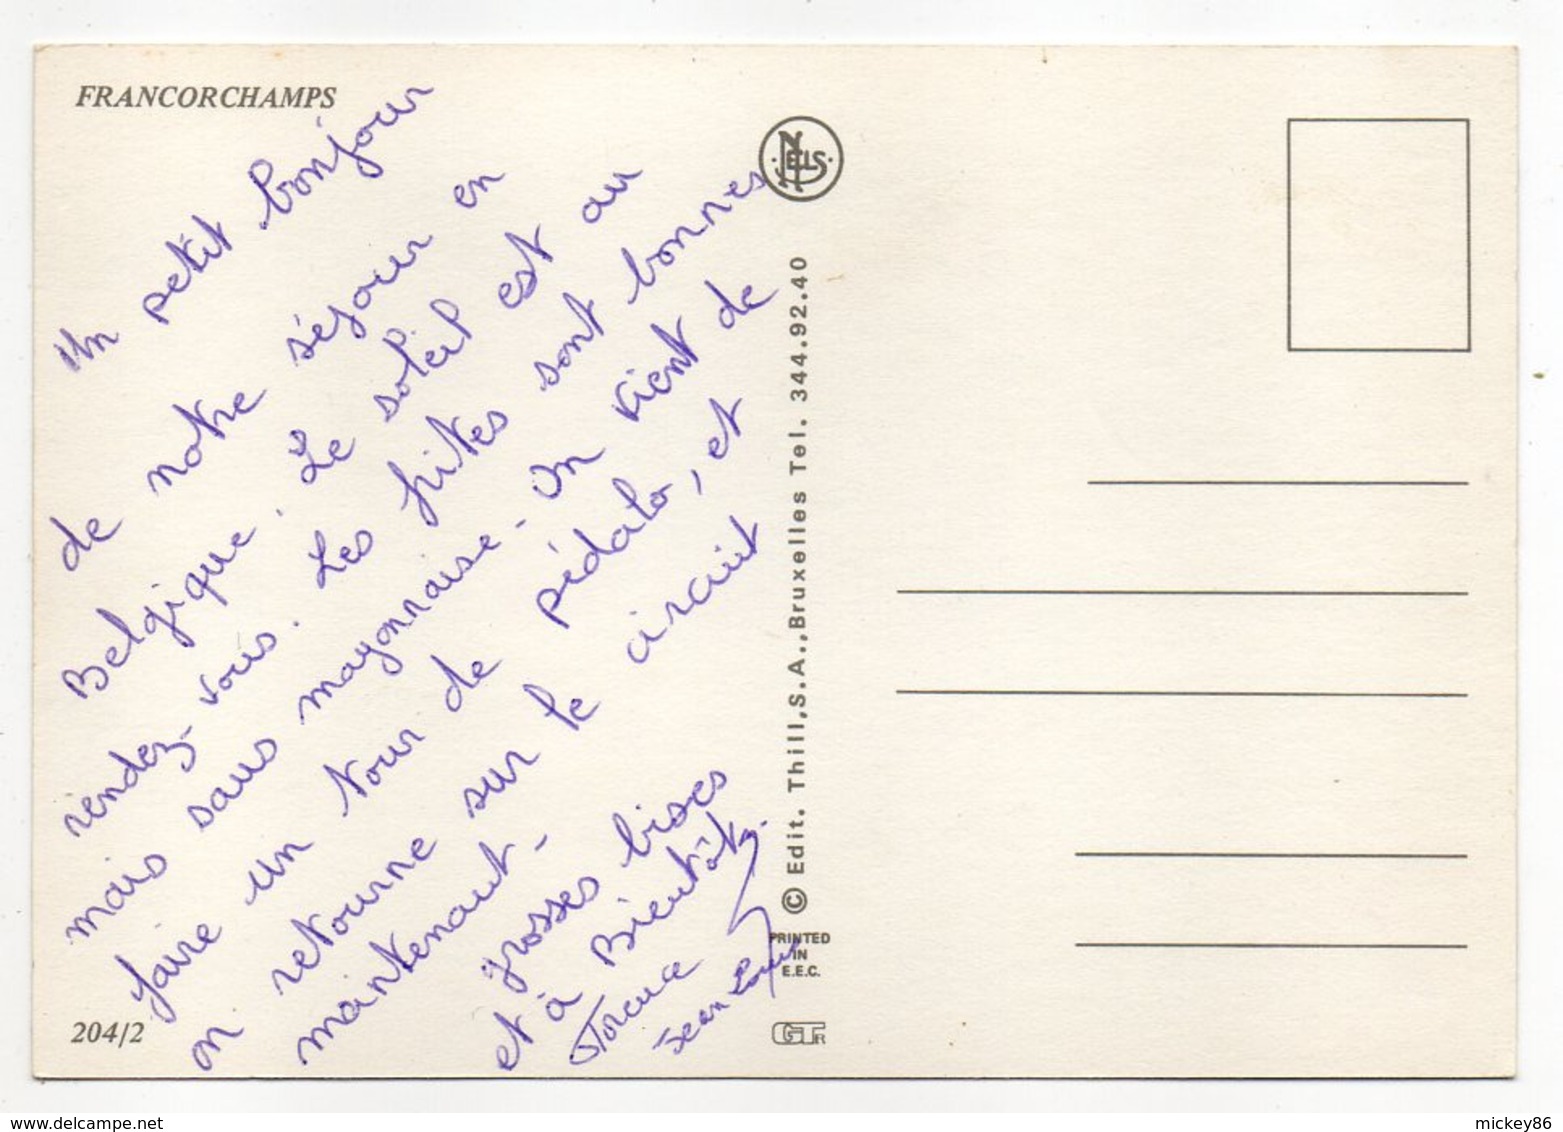 FRANCORCHAMPS
Un petit bonjour
de notre séjour en
Belgique. Le soleil est au
rendez-vous. Les frites sont bonnes
mais sans mayonnaise - On vient de
faire un tour de pédalo, et
on retourne sur le circuit
maintenant -
grosses bises
et à Bientôt
Jean Louis
NELS
© Edit. Thill, S.A., Bruxelles Tel. 344.92.40
PRINTED
IN
E.E.C.
204/2
www.delcampe.net
mickey86